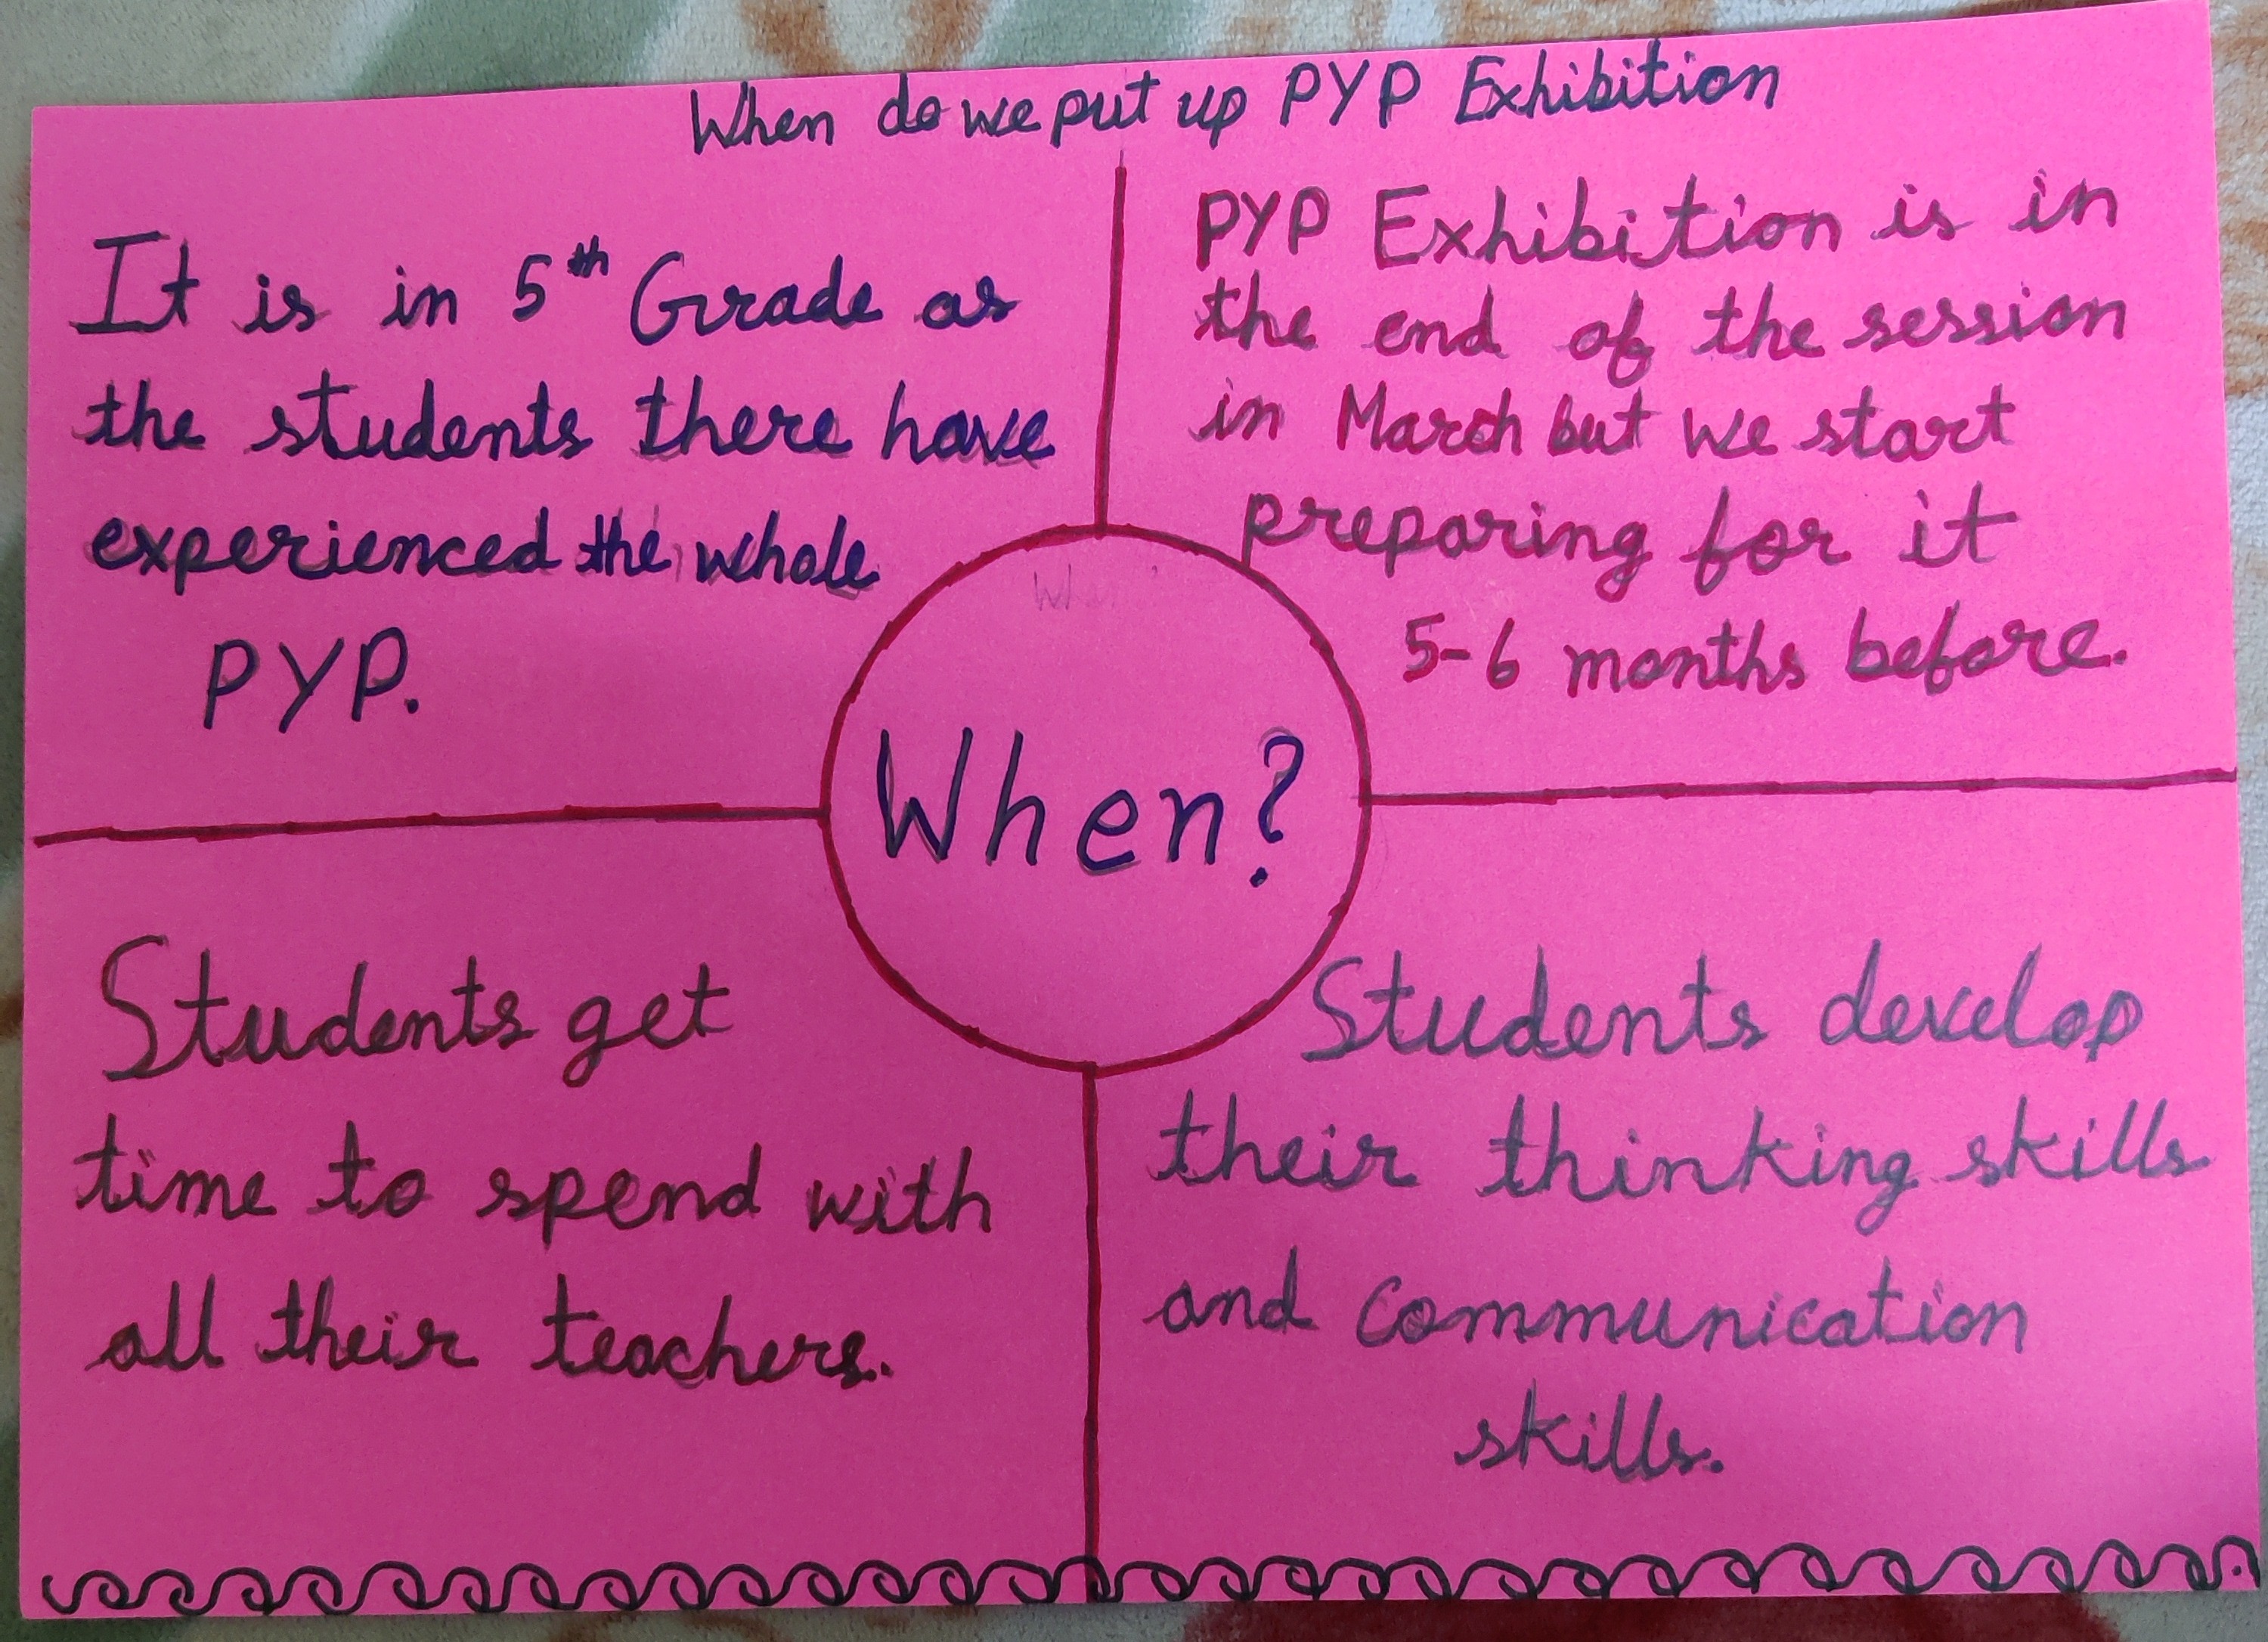 When do we put up PYP Exhibition
It is in 5th Grade as
the students there have
experienced the whole
PYP.
PYP Exhibition is in
the end of the session
in March but we start
preparing for it
5-6 months before.
When?
Students get
time to spend with
all their teachers.
Students develop
their thinking skills
and communication
skills.